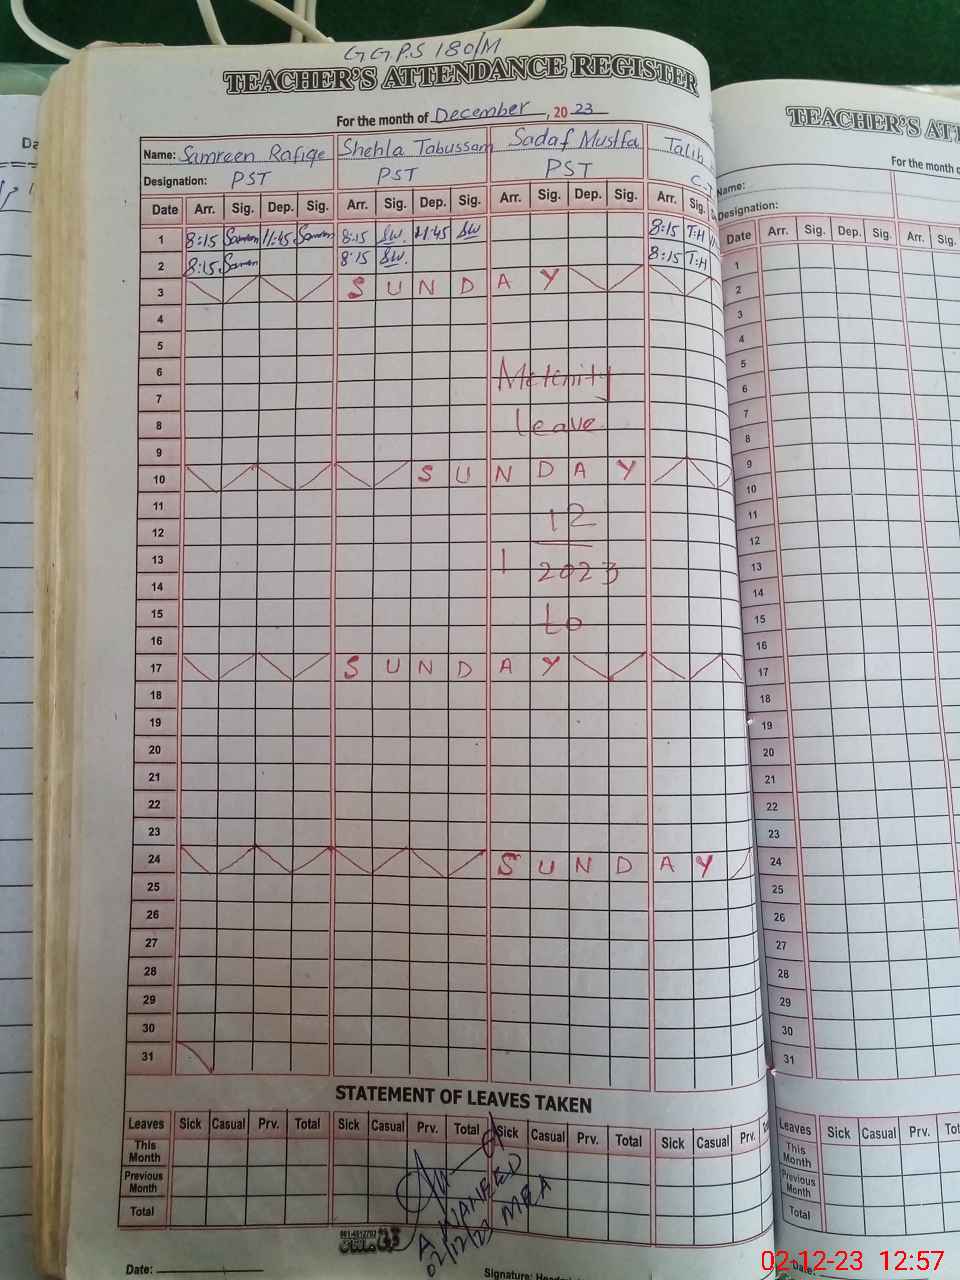 GGPS 180/M
TEACHER'S ATTENDANCE REGISTER
For the month of December, 2023
Name: Samreen Rafiqe Shehla Tabussam Sadaf Mustfa Talib
Designation: PST PST PST C.T
Date Arr. Sig. Dep. Sig. Arr. Sig. Dep. Sig. Arr. Sig. Dep. Sig. Arr. Sig.
1 8:15 11:45 8:15 SW. 11:45 SW 8:15 T.H
2 8:15 8:15 SW. 8:15 T.H
3 SUNDAY
4
5
6
Meternity
7
8 leave
9
10 SUNDAY
11
12 12
13 1 2023
14
15 to
16
17 SUNDAY
18
19
20
21
22
23
24 SUNDAY
25
26
27
28
29
30
31
STATEMENT OF LEAVES TAKEN
Leaves Sick Casual Prv. Total Sick Casual Prv. Total Sick Casual Prv. Total Sick Casual Prv.
This Month
Previous Month
Total
MEA
02/12/23
Date:
Signature:
TEACHER'S AT
For the month o
Name:
Designation:
Date Arr. Sig. Dep. Sig. Arr. Sig.
1
2
3
4
5
6
7
8
9
10
11
12
13
14
15
16
17
18
19
20
21
22
23
24
25
26
27
28
29
30
31
Leaves Sick Casual Prv. Tot
This Month
Previous Month
Total
Date:
02-12-23 12:57